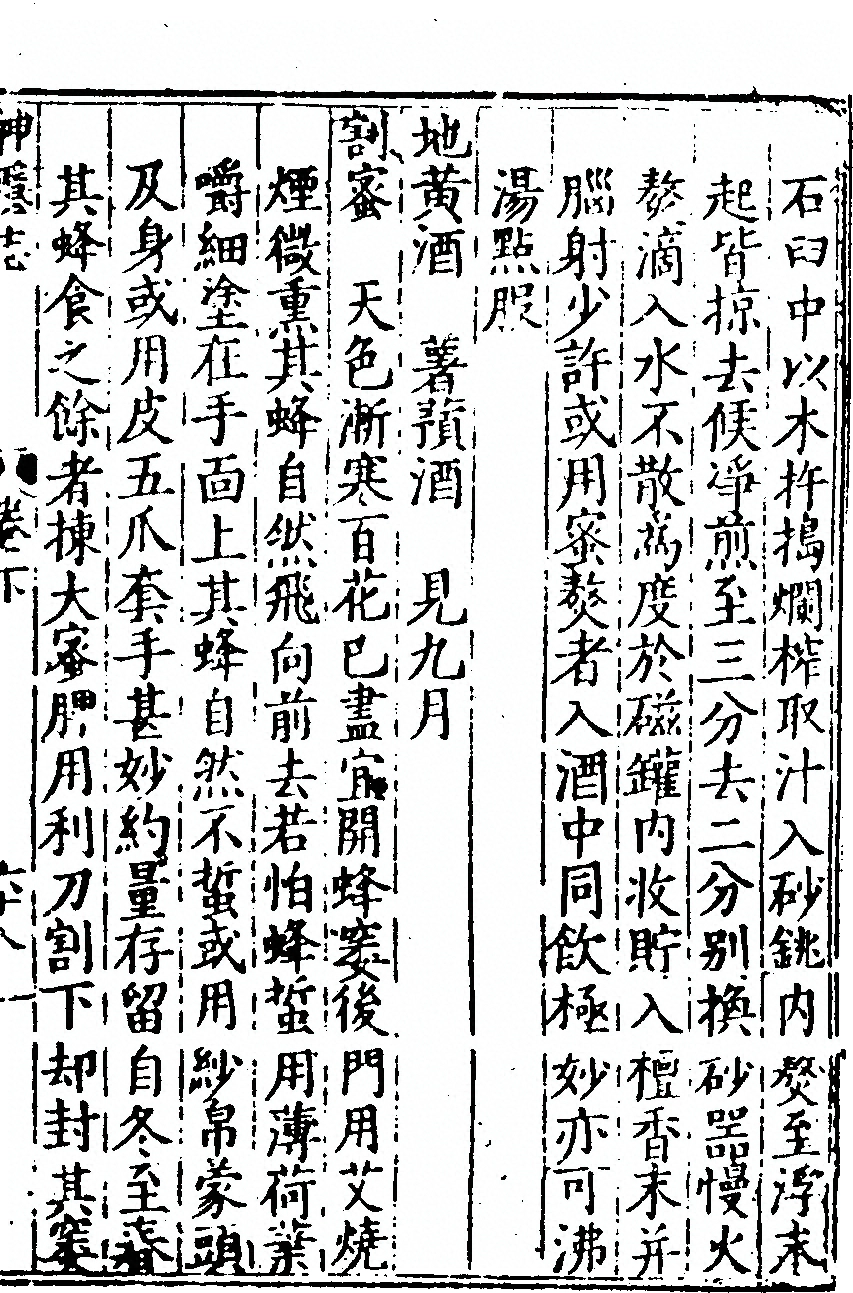 石臼中以木杵搗爛榨取汁入砂銚內熬至浮末
起皆掠去候凈煎至三分去二分别換砂器慢火
熬滴入水不散為度於磁罐内收貯入檀香末并
腦射少許或用蜜熬者入酒中同飲極妙亦可沸
湯點服
地黄酒　薯蕷酒　見九月
割蜜　天色漸寒百花已盡宜開蜂窠後門用艾燒
煙微熏其蜂自然飛向前去若怕蜂蜇用薄荷葉
嚼細塗在手面上其蜂自然不蜇或用紗帛蒙頭
及身或用皮五爪套手甚妙約量存留自冬至春
其蜂食之餘者揀大蜜脾用利刀割下却封其窠
神隱志　卷下　六十八